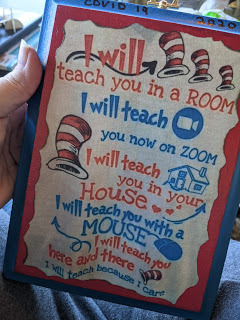 COVID 19 2020
I will
teach you in a ROOM
I will teach
you now on ZOOM
I will teach
you in your
HOUSE
I will teach you with a
MOUSE
I will teach you
here and there
I will teach because I care